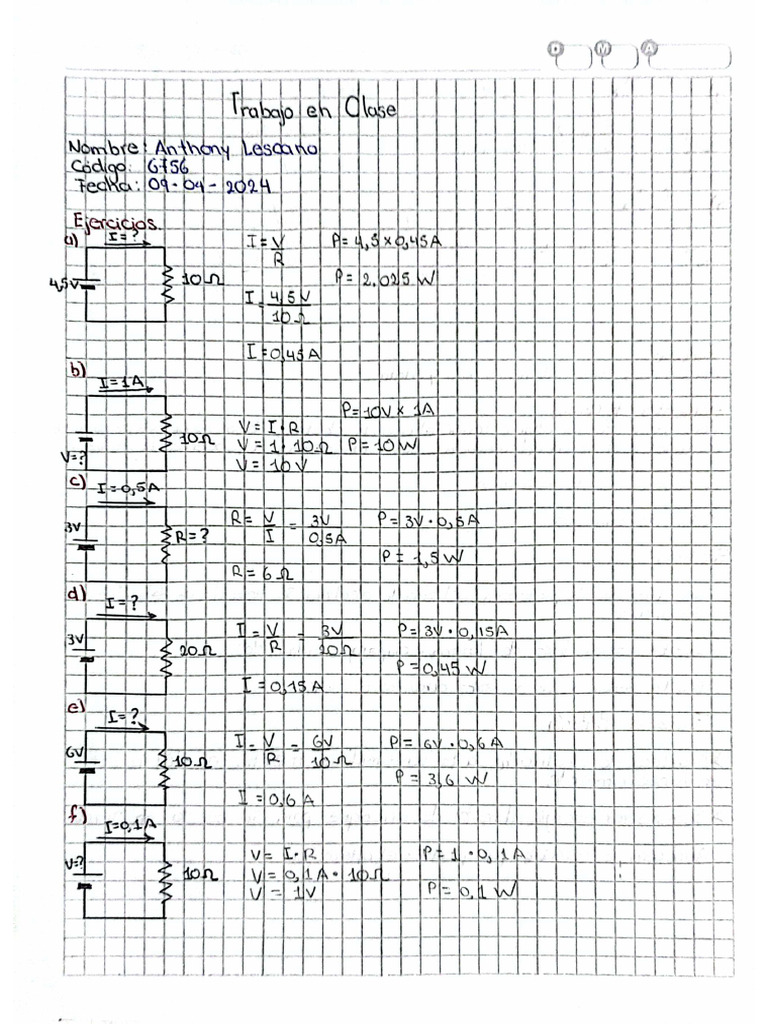 D M A
Trabajo en Clase
Nombre: Anthony Lescano
Código: 6756
Fecha: 09-04-2024
Ejercicios.
a) I=?
4,5V
10Ω
I = V/R
I = 4,5V/10Ω
I = 0,45A
P = 4,5 x 0,45A
P = 2.025 W
b) I = 1A
V=?
10Ω
V = I·R
V = 1 · 10Ω
V = 10V
P = 10V x 1A
P = 10W
c) I = 0,5A
3V
R = ?
R = V/I = 3V/0,5A
R = 6Ω
P = 3V · 0,5A
P = 1,5W
d) I = ?
3V
20Ω
I = V/R = 3V/20Ω
I = 0,15A
P = 3V · 0,15A
P = 0,45W
e) I = ?
6V
10Ω
I = V/R = 6V/10Ω
I = 0,6A
P = 6V · 0,6A
P = 3,6 W
f) I = 0,1A
V=?
10Ω
V = I·R
V = 0,1A · 10Ω
V = 1V
P = 1 · 0,1A
P = 0,1W